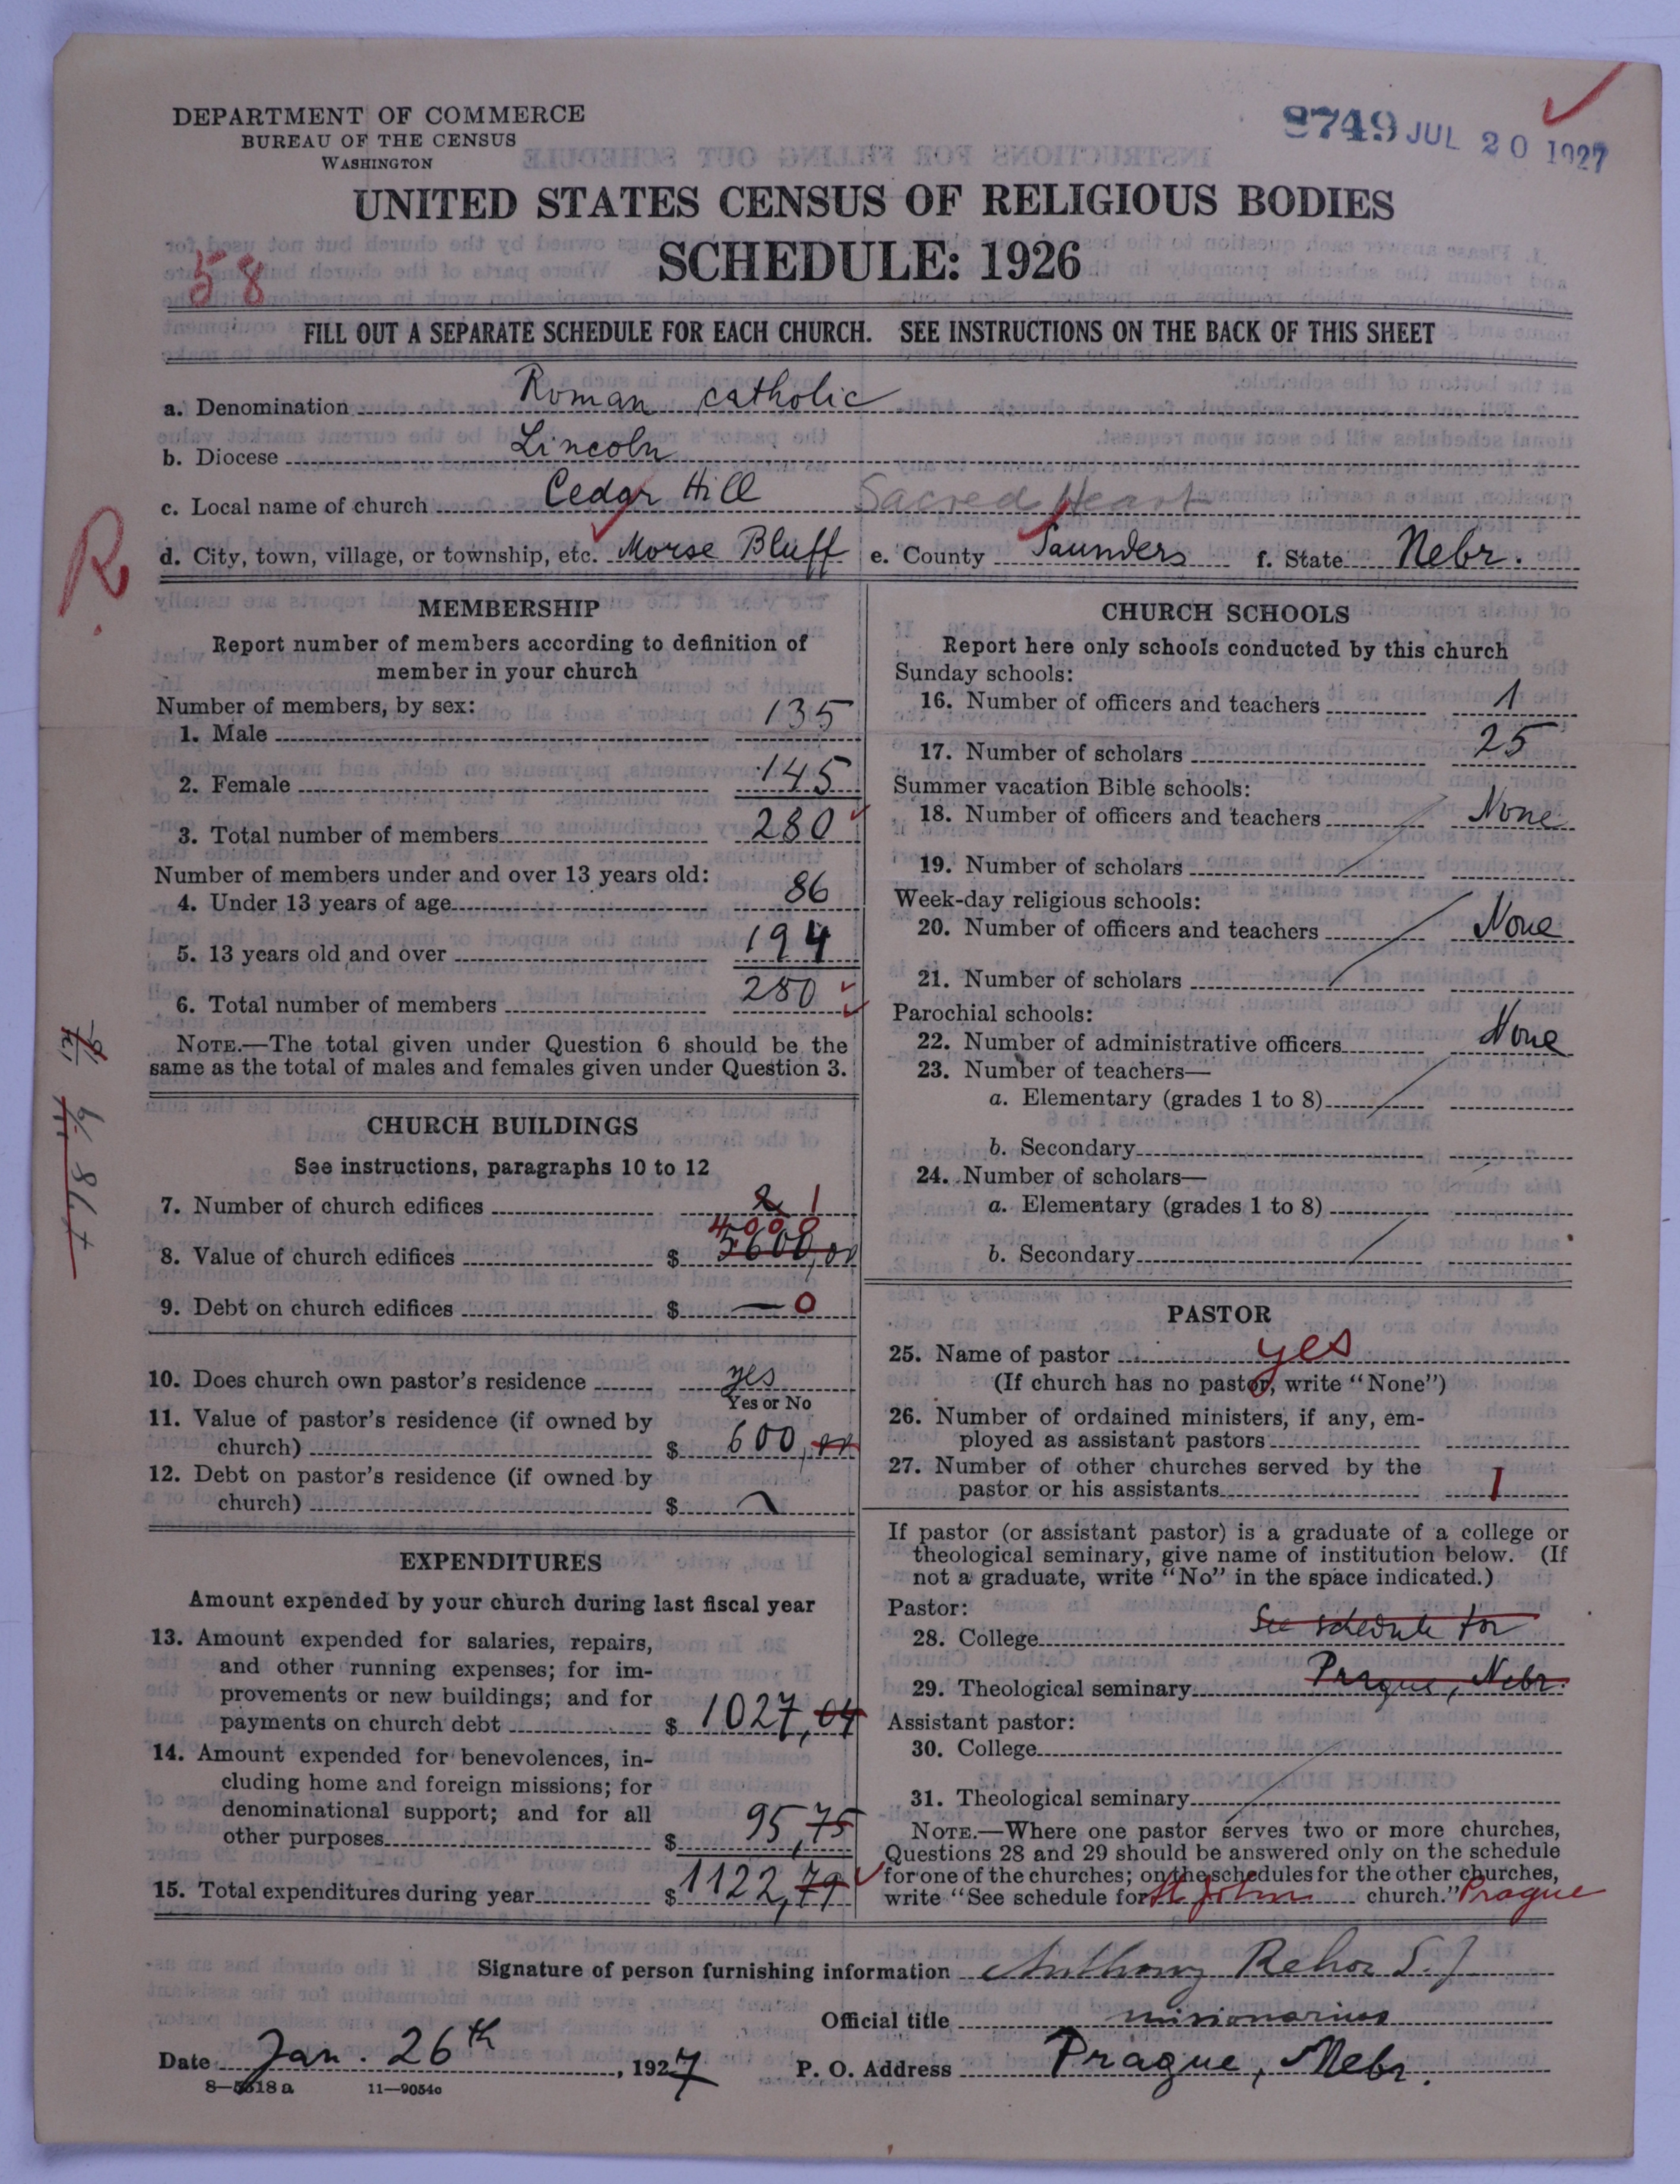 DEPARTMENT OF COMMERCE
BUREAU OF THE CENSUS
WASHINGTON
8749 JUL 20 1927
UNITED STATES CENSUS OF RELIGIOUS BODIES
SCHEDULE: 1926
58
FILL OUT A SEPARATE SCHEDULE FOR EACH CHURCH. SEE INSTRUCTIONS ON THE BACK OF THIS SHEET
a. Denomination Roman catholic
b. Diocese Lincoln
c. Local name of church Cedar Hill Sacred Heart
d. City, town, village, or township, etc. Morse Bluff e. County Saunders f. State Nebr.
R.
MEMBERSHIP
Report number of members according to definition of
member in your church
Number of members, by sex:
1. Male 135
2. Female 145
3. Total number of members 280
Number of members under and over 13 years old:
4. Under 13 years of age 86
5. 13 years old and over 194
6. Total number of members 280
NOTE.—The total given under Question 6 should be the
same as the total of males and females given under Question 3.
CHURCH BUILDINGS
See instructions, paragraphs 10 to 12
7. Number of church edifices 2 1
4000
8. Value of church edifices $ 5600,00
9. Debt on church edifices $ — 0
10. Does church own pastor's residence yes
Yes or No
11. Value of pastor's residence (if owned by
church) $ 600,00
12. Debt on pastor's residence (if owned by
church) $
EXPENDITURES
Amount expended by your church during last fiscal year
13. Amount expended for salaries, repairs,
and other running expenses; for im-
provements or new buildings; and for
payments on church debt $ 1027,04
14. Amount expended for benevolences, in-
cluding home and foreign missions; for
denominational support; and for all
other purposes $ 95,75
15. Total expenditures during year $ 1122,79
CHURCH SCHOOLS
Report here only schools conducted by this church
Sunday schools:
16. Number of officers and teachers 1
17. Number of scholars 25
Summer vacation Bible schools:
18. Number of officers and teachers None
19. Number of scholars
Week-day religious schools:
20. Number of officers and teachers None
21. Number of scholars
Parochial schools:
22. Number of administrative officers None
23. Number of teachers—
a. Elementary (grades 1 to 8)
b. Secondary
24. Number of scholars—
a. Elementary (grades 1 to 8)
b. Secondary
PASTOR
25. Name of pastor yes
(If church has no pastor, write "None")
26. Number of ordained ministers, if any, em-
ployed as assistant pastors
27. Number of other churches served by the
pastor or his assistants 1
If pastor (or assistant pastor) is a graduate of a college or
theological seminary, give name of institution below. (If
not a graduate, write "No" in the space indicated.)
Pastor:
28. College See schedule for
29. Theological seminary Prague, Nebr.
Assistant pastor:
30. College
31. Theological seminary
NOTE.—Where one pastor serves two or more churches,
Questions 28 and 29 should be answered only on the schedule
for one of the churches; on the schedules for the other churches,
write "See schedule for St John church." Prague
Signature of person furnishing information Anthony Rehor S.J
Official title misionarius
Date Jan. 26th, 1927 P. O. Address Prague, Nebr.
8—5518 a 11—9054a